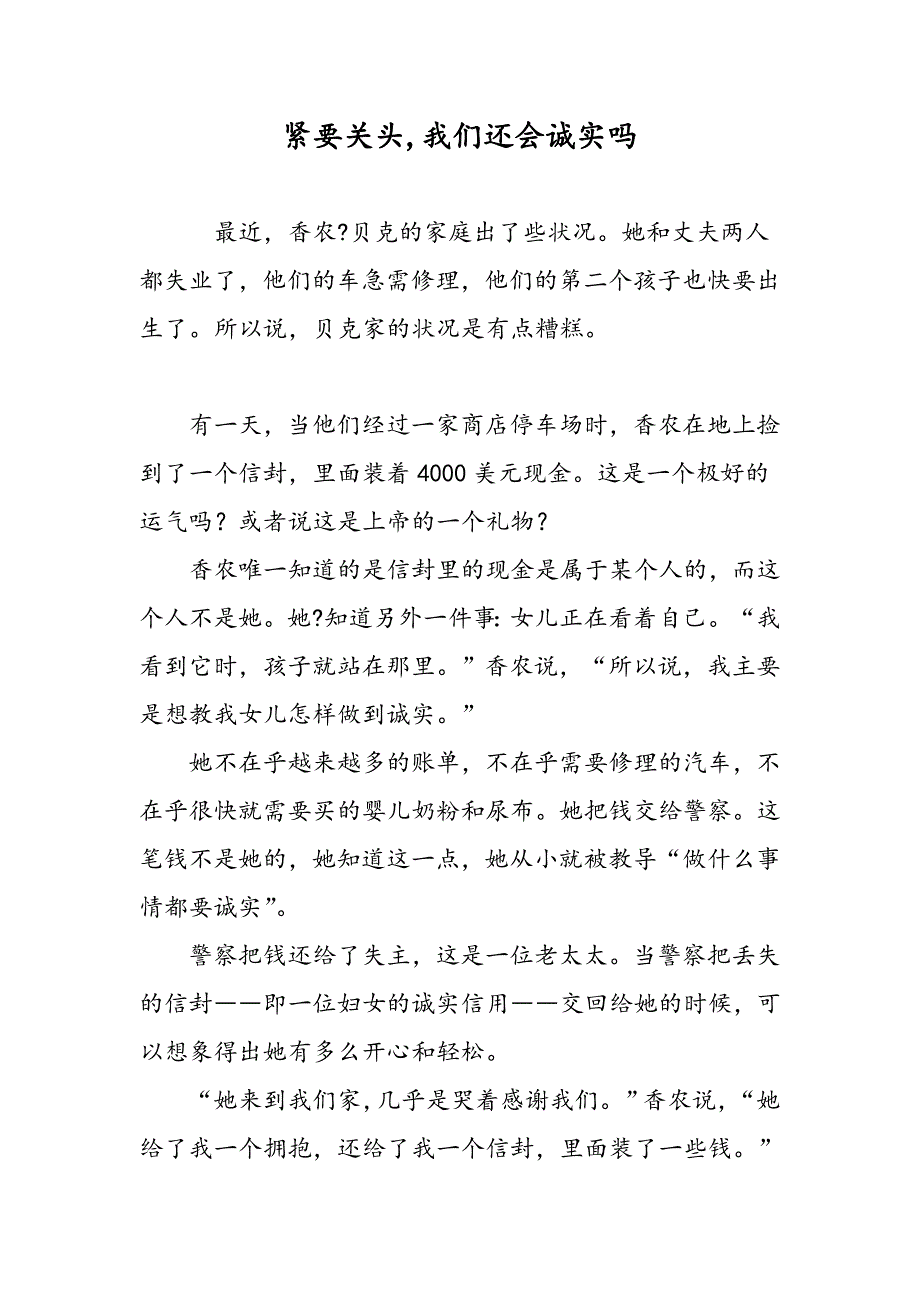 紧要关头,我们还会诚实吗
最近，香农?贝克的家庭出了些状况。她和丈夫两人
都失业了，他们的车急需修理，他们的第二个孩子也快要出
生了。所以说，贝克家的状况是有点糟糕。
有一天，当他们经过一家商店停车场时，香农在地上捡
到了一个信封，里面装着 4000 美元现金。这是一个极好的
运气吗？或者说这是上帝的一个礼物？
香农唯一知道的是信封里的现金是属于某个人的，而这
个人不是她。她?知道另外一件事：女儿正在看着自己。“我
看到它时，孩子就站在那里。”香农说，“所以说，我主要
是想教我女儿怎样做到诚实。”
她不在乎越来越多的账单，不在乎需要修理的汽车，不
在乎很快就需要买的婴儿奶粉和尿布。她把钱交给警察。这
笔钱不是她的，她知道这一点，她从小就被教导“做什么事
情都要诚实”。
警察把钱还给了失主，这是一位老太太。当警察把丢失
的信封——即一位妇女的诚实信用——交回给她的时候，可
以想象得出她有多么开心和轻松。
“她来到我们家,几乎是哭着感谢我们。”香农说，“她
给了我一个拥抱，还给了我一个信封，里面装了一些钱。”